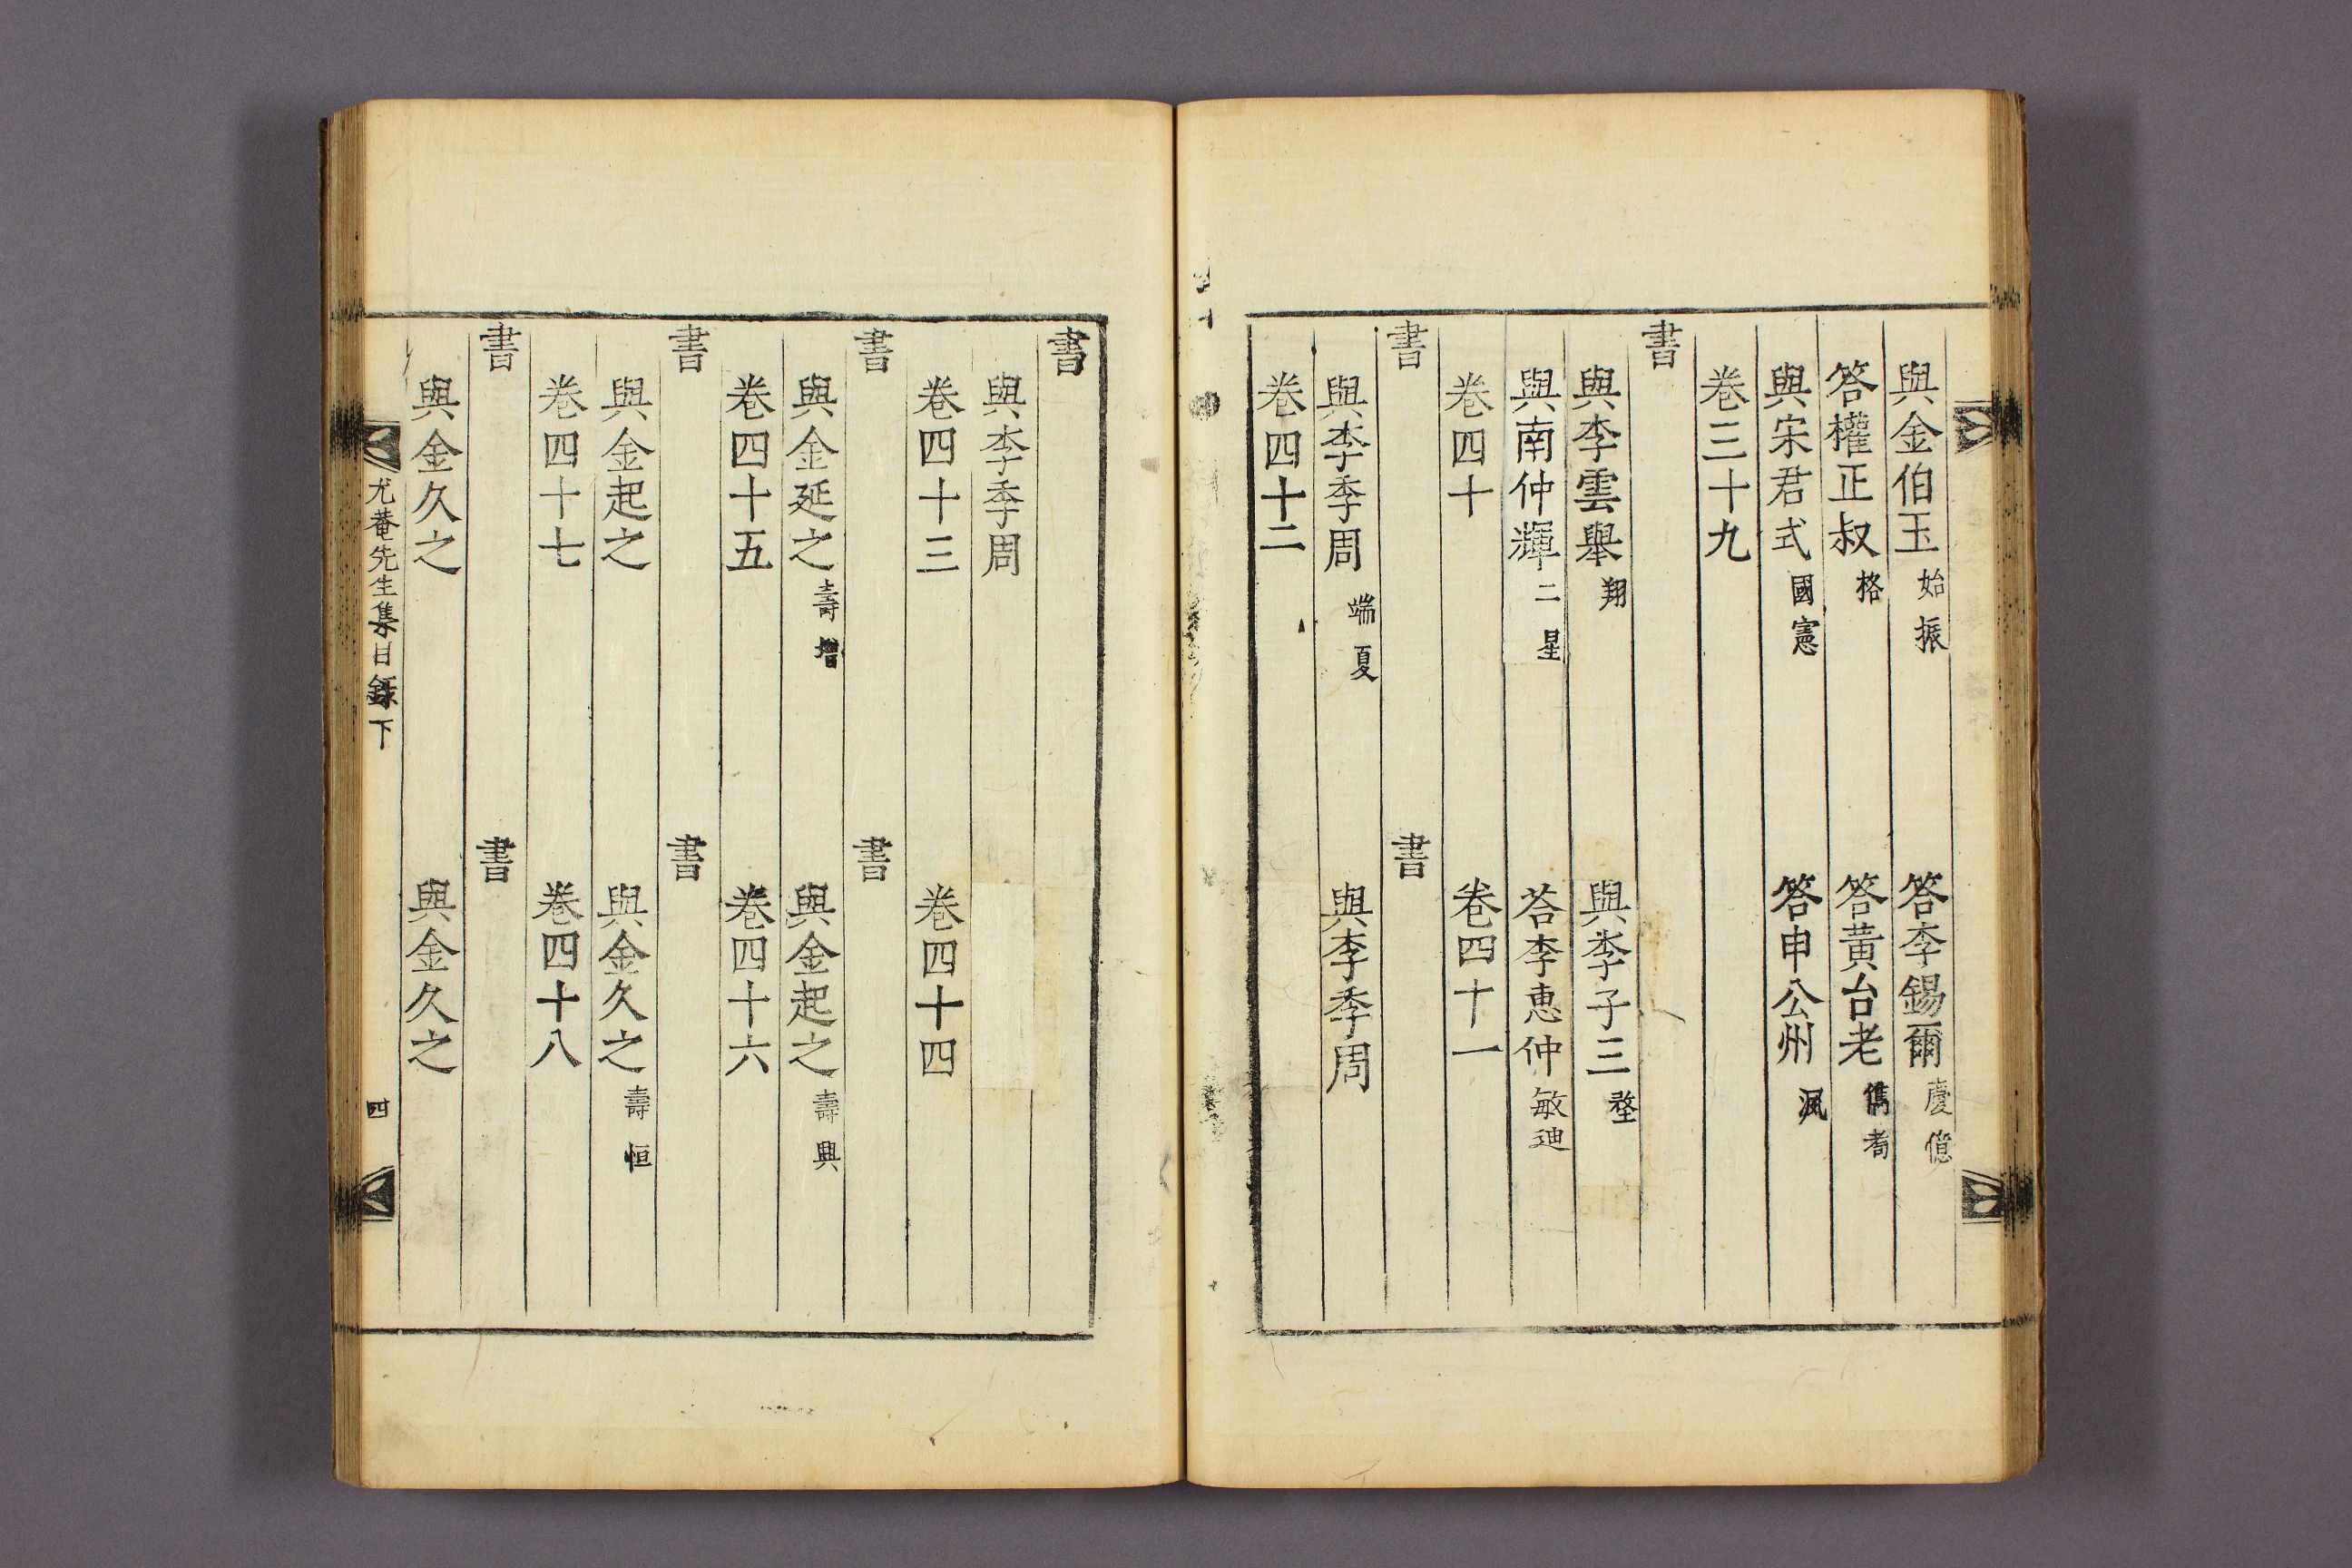 與金伯玉 始振 答李錫爾 慶億
答權正叔 格 答黃台老 儁耈
與宋君式 國憲 答申公州 渢
卷三十九
書
與李雲舉 翔 與李子三 堥
與南仲輝 二星 荅李惠仲 敏迪
卷四十 卷四十一
書 書
與李季周 端夏 與李季周
卷四十二
書
與李季周
卷四十三 卷四十四
書 書
與金延之 壽增 與金起之 壽興
卷四十五 卷四十六
書 書
與金起之 與金久之 壽恒
卷四十七 卷四十八
書 書
與金久之 與金久之
尤菴先生集目錄下 四